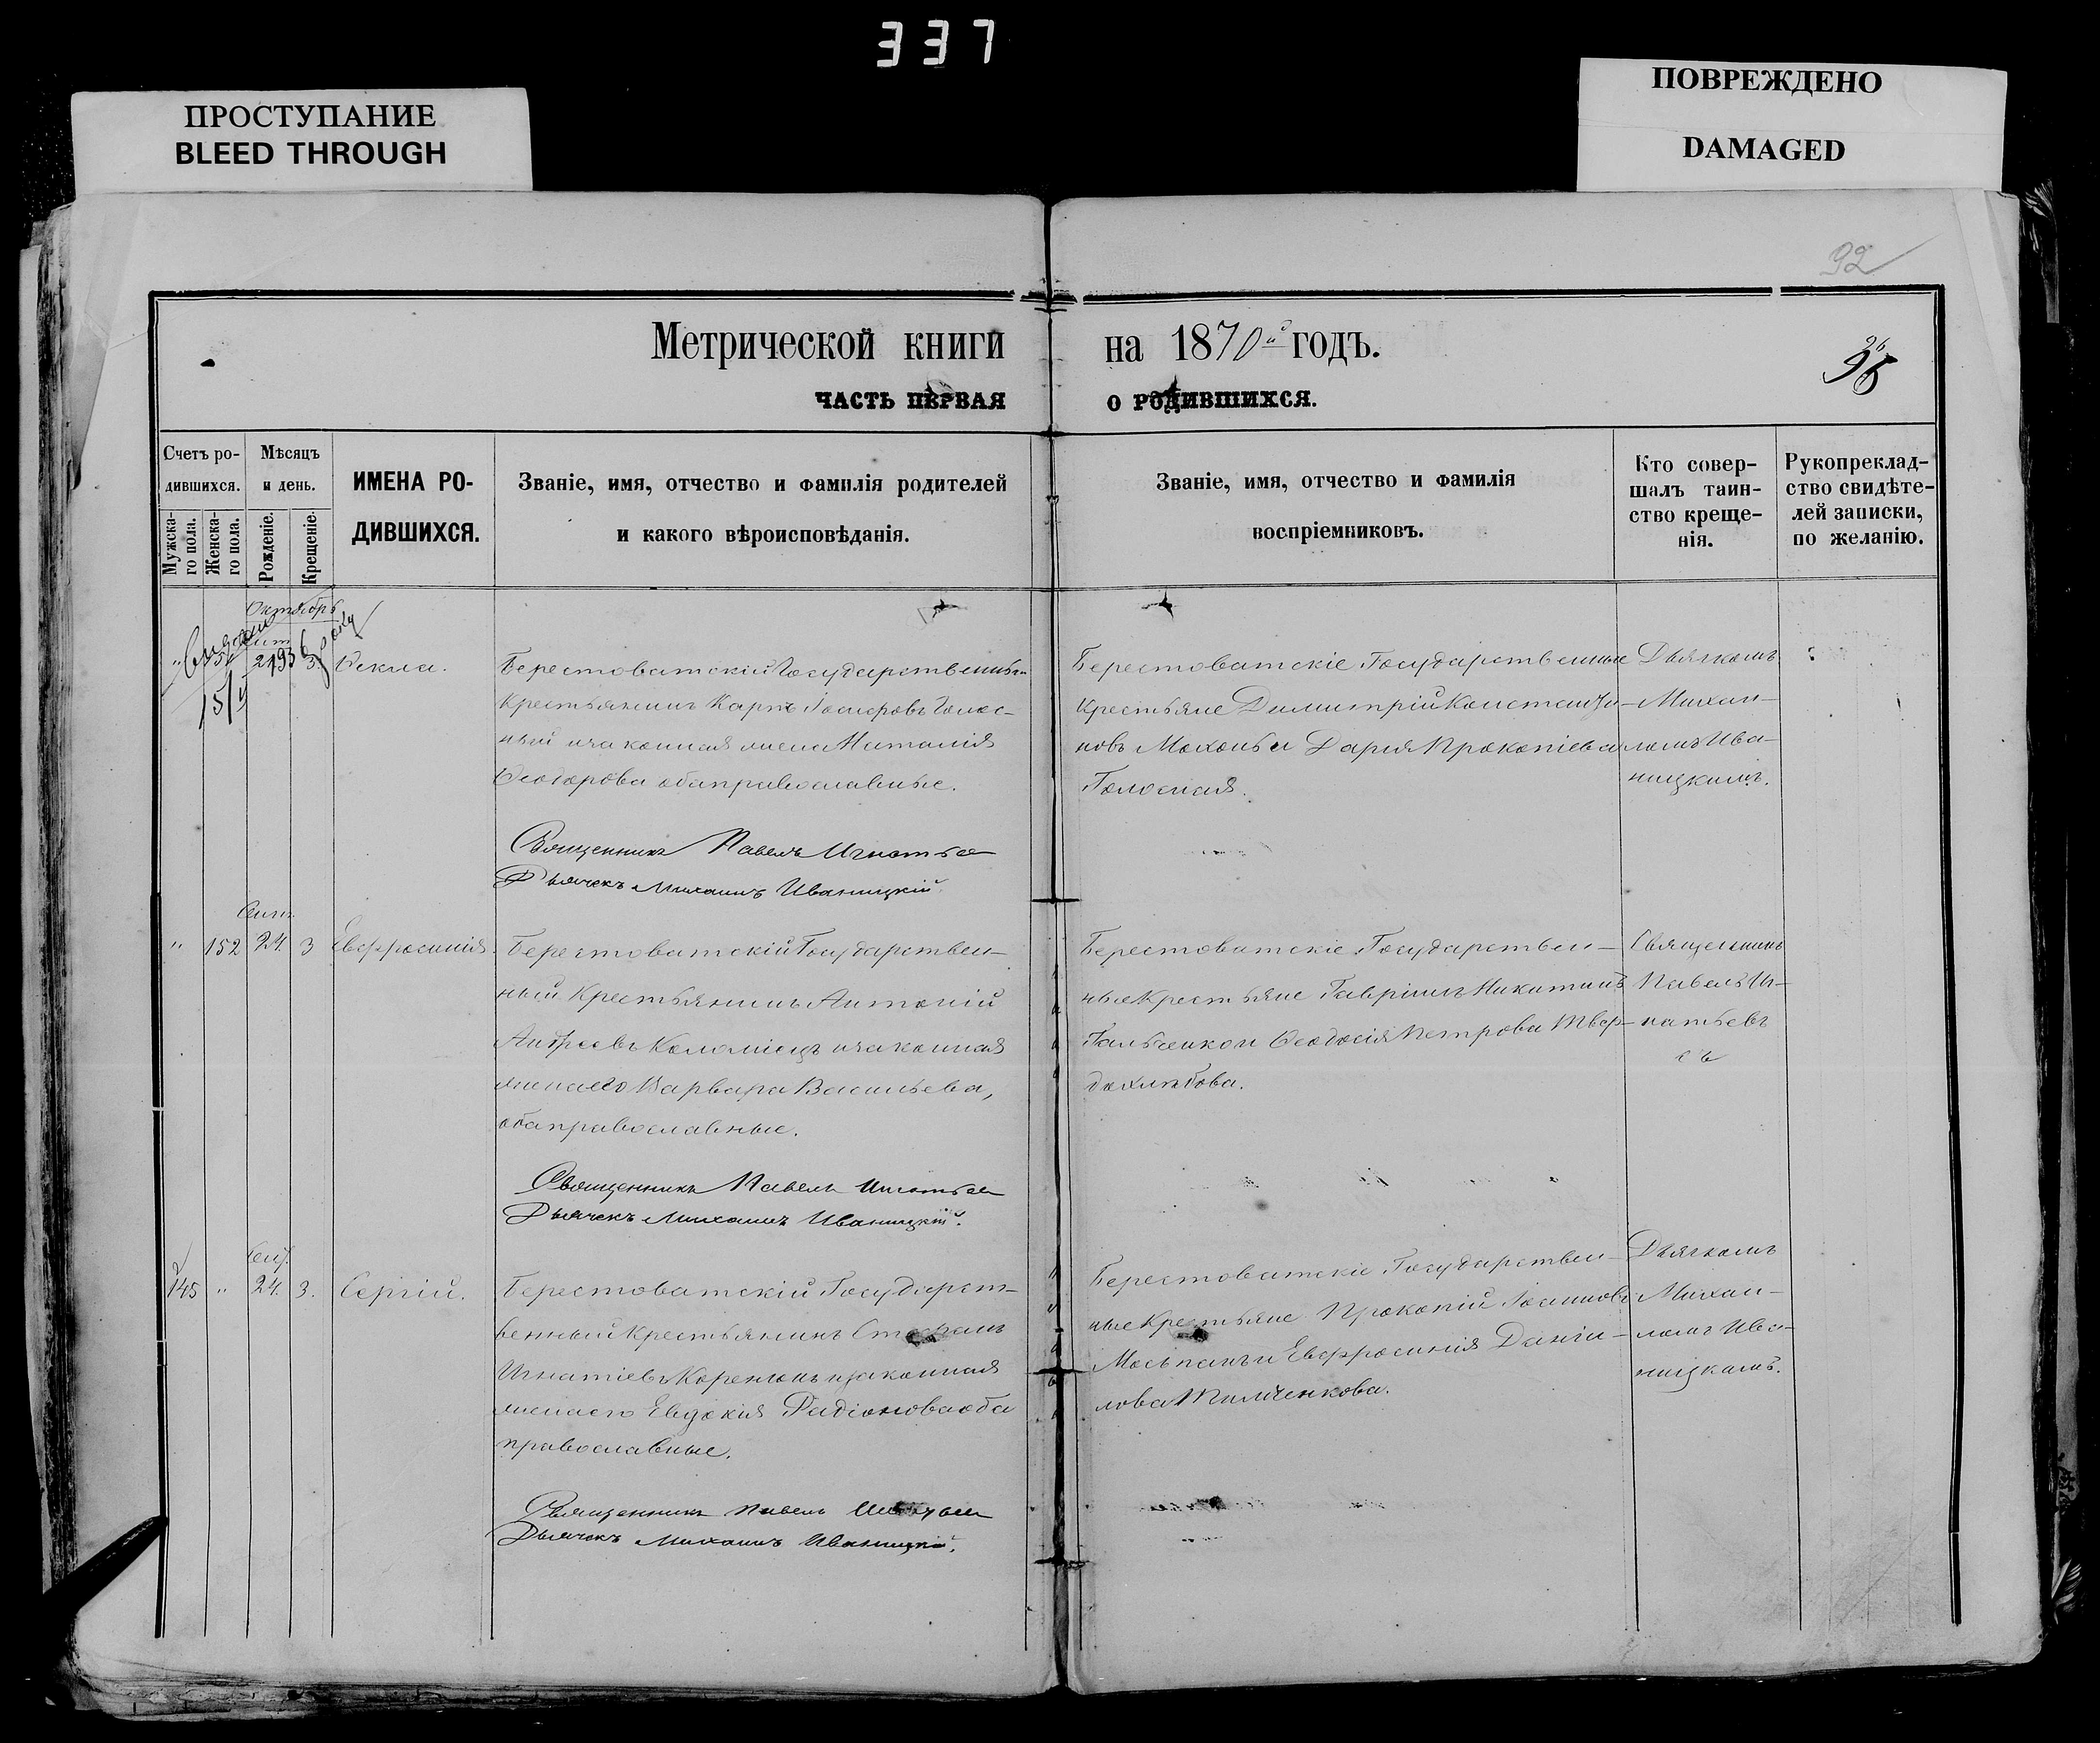 337
ПРОСТУПАНИЕ
BLEED THROUGH
ПОВРЕЖДЕНО
DAMAGED
92
Метрической книги на 1870й годъ.
ЧАСТЬ ПЕРВАЯ О РОДИВШИХСЯ.
Счетъ ро-
дившихся.
Мужска-
го пола.
Женска-
го пола.
Мѣсяцъ
и день.
Рожденіе.
Крещеніе.
ИМЕНА РО-
ДИВШИХСЯ.
Званіе, имя, отчество и фамилія родителей
и какого вѣроисповѣданія.
Званіе, имя, отчество и фамилія
воспріемниковъ.
Кто совер-
шалъ таин-
ство креще-
нія.
Рукопреклад-
ство свидѣте-
лей записки,
по желанію.
Октябрь
Ѳекла.
Берестоватскій Государственный
Крестьянинъ Карпъ Голос-
ный и законная жена Наталія
Ѳеодорова оба православные.
Священникъ Павелъ Игнатьев
Дьячекъ Михаилъ Иваницкій
Берестоватскіе Государственные
Крестьяне Димитрій Константи-
новъ Махонь и Дарія Прокопіева
Голосная.
Дьячкомъ
Михаи-
ломъ Ива-
ницкимъ.
Сент.
" 152 24. 3 Евфросинія
Берестоватскій Государствен-
ный Крестьянинъ Антоній
Андреевъ Коломіецъ и законная
жена его Варвара Васильева,
оба православные.
Священникъ Павелъ Игнатьев
Дьячекъ Михаилъ Иваницкій.
Берестоватскіе Государствен-
ные Крестьяне Гавріилъ Никитинъ
Гальченко и Ѳеодосія Петрова Твер-
дохлѣбова.
Священникъ
Павелъ Иг-
натьевъ
145 " 24. 3. Сергій.
Берестоватскій Государст-
венный Крестьянинъ Стефанъ
Игнатіевъ и законная
жена его Евдокія Радіонова оба
православные.
Священникъ Павелъ
Дьячекъ Михаилъ Иваницкій.
Берестоватскіе Государствен-
ные Крестьяне Прокопій Іоанновъ
Моспанъ и Евфросинія Дании-
лова
Дьячкомъ
Михаи-
ломъ Ива-
ницкимъ.